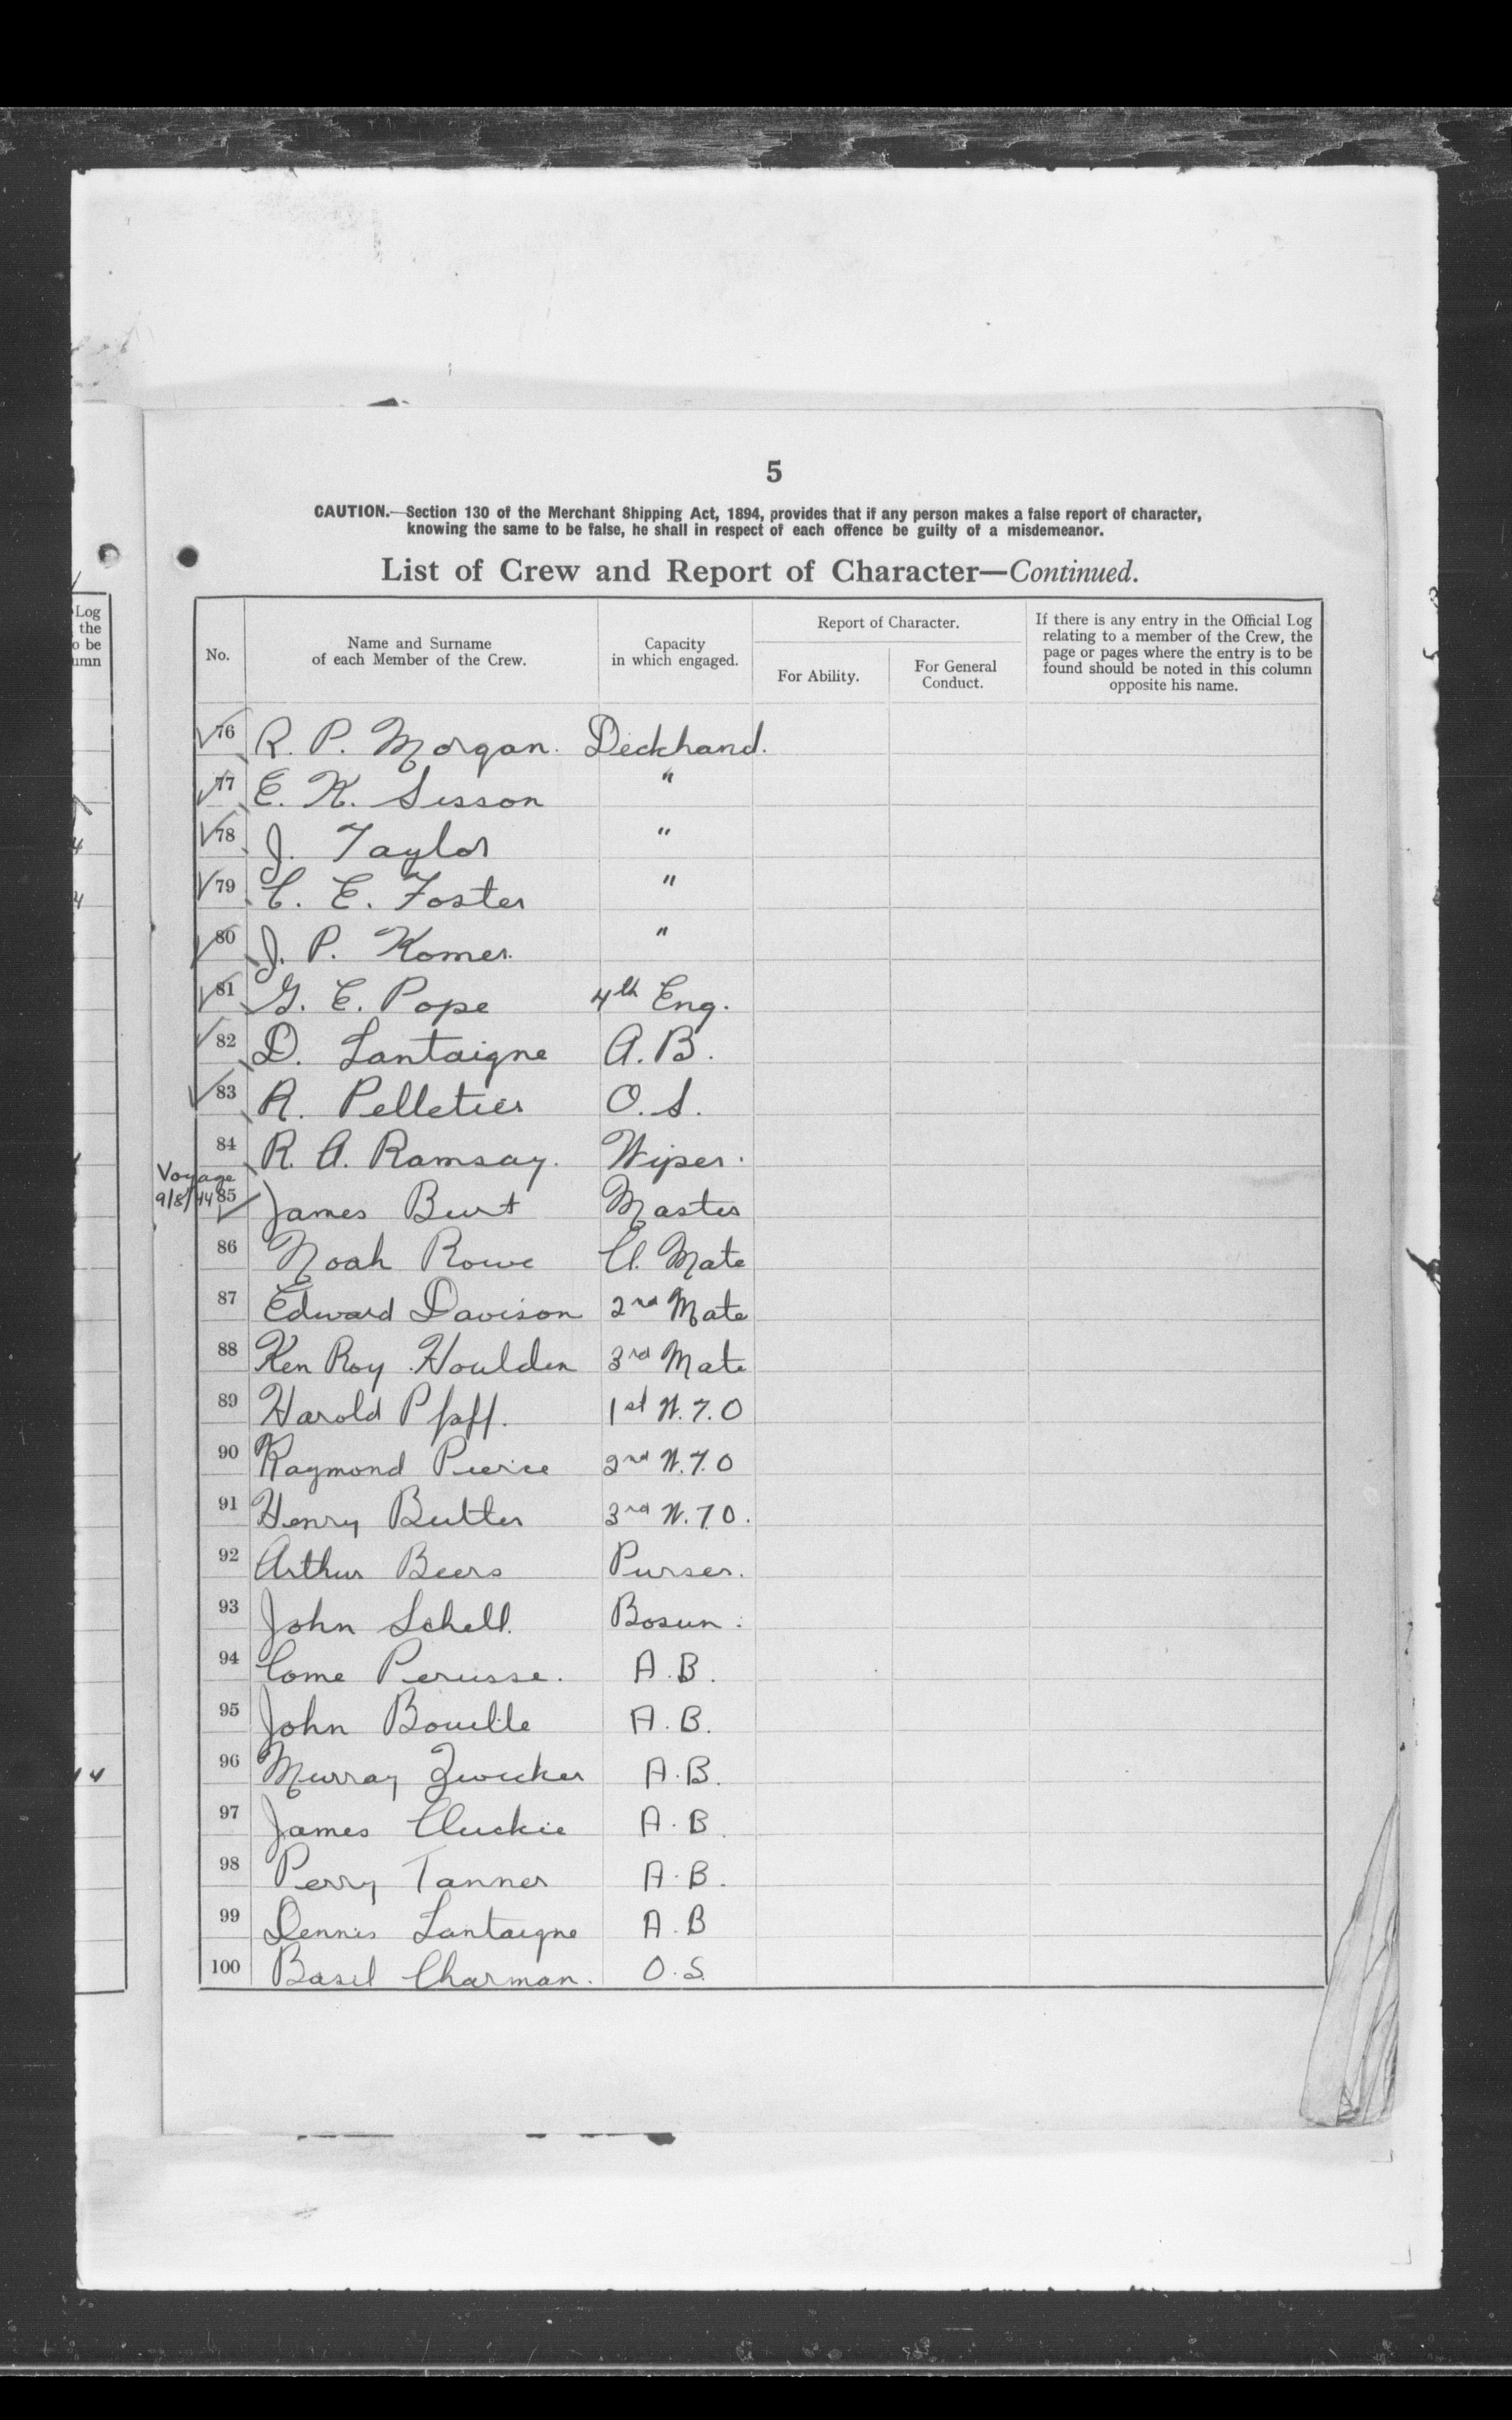 5
CAUTION.—Section 130 of the Merchant Shipping Act, 1894, provides that if any person makes a false report of character,
knowing the same to be false, he shall in respect of each offence be guilty of a misdemeanor.
List of Crew and Report of Character—Continued.
Log
the
o be
umn
No.
Name and Surname
of each Member of the Crew.
Capacity
in which engaged.
Report of Character.
For Ability.
For General
Conduct.
If there is any entry in the Official Log
relating to a member of the Crew, the
page or pages where the entry is to be
found should be noted in this column
opposite his name.
76 R. P. Morgan. Deckhand.
77 E. K. Sisson "
78 J. Taylor "
79 C. E. Foster "
80 J. P. Komer. "
81 G. E. Pope 4th Eng.
82 D. Lantaigne A.B.
83 R. Pelletier O.S.
84 R. A. Ramsay. Wiper.
Voyage
9/8/44 85 James Burt Master
86 Noah Rowe C. Mate
87 Edward Davison 2nd Mate
88 Ken Roy Houlden 3rd Mate
89 Harold Pfaff. 1st W.T.O
90 Raymond Pierce 2nd W.T.O
91 Henry Butler 3rd W.T.O.
92 Arthur Beers Purser.
93 John Schell. Bosun.
94 Come Perusse. A.B.
95 John A.B.
96 Murray Zwicker A.B.
97 James Cluckie A.B.
98 Perry Tanner A.B.
99 Dennis Lantaigne A.B
100 Basil Charman. O.S.